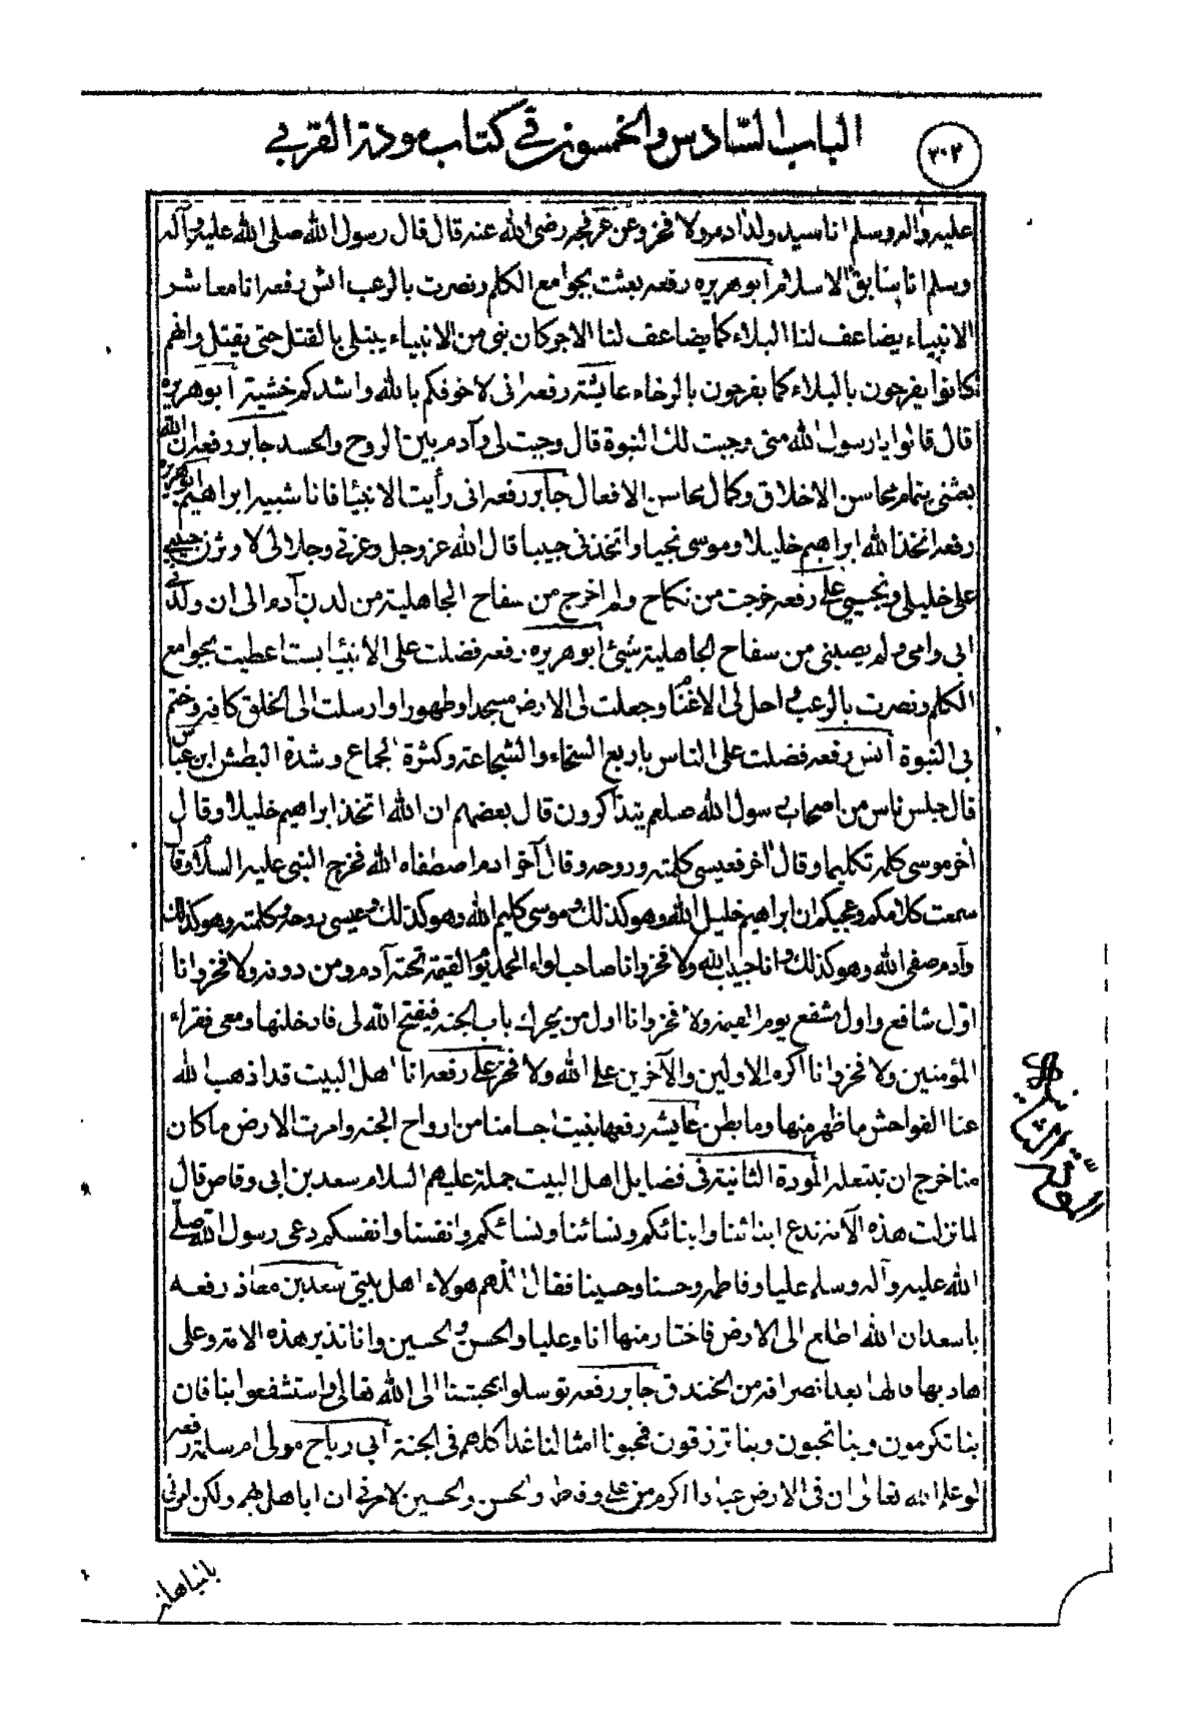 الباب السادس والخمسون في كتاب مودة القربى
٣٠٢
عليه وآله وسلم انا سيد ولد آدم ولا فخر وعن عرفجه رضي الله عنه قال قال رسول الله صلى الله عليه وآله
وسلم انا سابق الاسلام أبو هريره رفعه بعثت بجوامع الكلم ونصرت بالرعب انس رفعه انا معاشر
الانبياء يضاعف لنا البلاء كما يضاعف لنا الاجر كان نبي من الانبياء يبتلى بالقتل حتى يقتل وانهم
كانوا يفرحون بالبلاء كما يفرحون بالرخاء عايشة رفعه اني لاخوفكم بالله واشدكم خشية أبو هريره
قال قالوا يا رسول الله متى وجبت لك النبوة قال وجبت لي وآدم بين الروح والجسد جابر رفعه ان الله
بعثني بتمام محاسن الاخلاق وكمال محاسن الافعال جابر رفعه اني رأيت الانبياء فانا شبيه ابراهيم أبو هريره
رفعه اتخذ الله ابراهيم خليلا وموسى نجيا واتخذني حبيبا قال الله عز وجل وعزتي وجلالي لاوثرن حبيبي
على خليلي ونجيي علي رفعه خرجت من نكاح ولم اخرج من سفاح الجاهلية من لدن آدم الى ان ولدني
ابي وامي ولم يصبني من سفاح الجاهلية شيئ أبو هريره رفعه فضلت على الانبياء بست اعطيت بجوامع
الكلم ونصرت بالرعب واحل لي الاغنام وجعلت لي الارض مسجدا وطهورا وارسلت الى الخلق كافه وختم
بي النبوة أنس رفعه فضلت على الناس باربع السخاء والشجاعة وكثرة الجماع وشدة البطش ابن عباس
قال جلس ناس من اصحاب رسول الله صلعم يتذاكرون قال بعضهم ان الله اتخذ ابراهيم خليلا وقال
آخر موسى كلمه تكليما وقال آخر فعيسى كلمته وروحه وقال آخر ادم اصطفاه الله فخرج النبي عليه السلام وقال
سمعت كلامكم وعجبكم ان ابراهيم خليل الله وهو كذلك وموسى كليم الله وهو كذلك وعيسى روحه وكلمته وهو كذلك
وآدم صفي الله وهو كذلك وانا حبيب الله ولا فخر وانا صاحب لواء الحمد يوم القيمة تحته آدم ومن دونه ولا فخر وانا
اول شافع واول مشفع يوم القيمة ولا فخر وانا اول من يحرك باب الجنه فيفتح الله لي فادخلنها ومعي فقراء
المؤمنين ولا فخر وانا اكرم الاولين والآخرين على الله ولا فخر علي رفعه انا اهل البيت قد اذهب الله
عنا الفواحش ما ظهر منها وما بطن عايشه رفعها بنيت اجسامنا من ارواح الجنه وامرت الارض ما كان
منا خرج ان تبتعله المودة الثانية في فضايل اهل البيت جملة عليهم السلام سعد بن ابي وقاص قال
لما نزلت هذه الآية ندع ابنائنا وابنائكم ونسائنا ونسائكم وانفسنا وانفسكم دعى رسول الله صلى
الله عليه وآله وسلم عليا وفاطمه وحسنا وحسينا فقال اللهم هولاء اهل بيتي سعد بن معاذ رفعه
يا سعد ان الله اطلع الى الارض فاختار منها انا وعليا والحسن والحسين وانا نذير هذه الامة وعلي
هاديها قالها بعد انصرافه من الخندق جابر رفعه توسلوا بمحبتنا الى الله تعالى واستشفعوا بنا فان
بنا تكرمون وبنا تحبون وبنا ترزقون فمحبونا امثالنا غدا كلهم في الجنة أبي رباح مولى ام سلمة رفعه
لو علم الله تعالى ان في الارض عبادا اكرم من علي وفاطمه والحسن والحسين لامرني ان اباهل بهم ولكن امرني
المودة الثانية
بالمباهلة